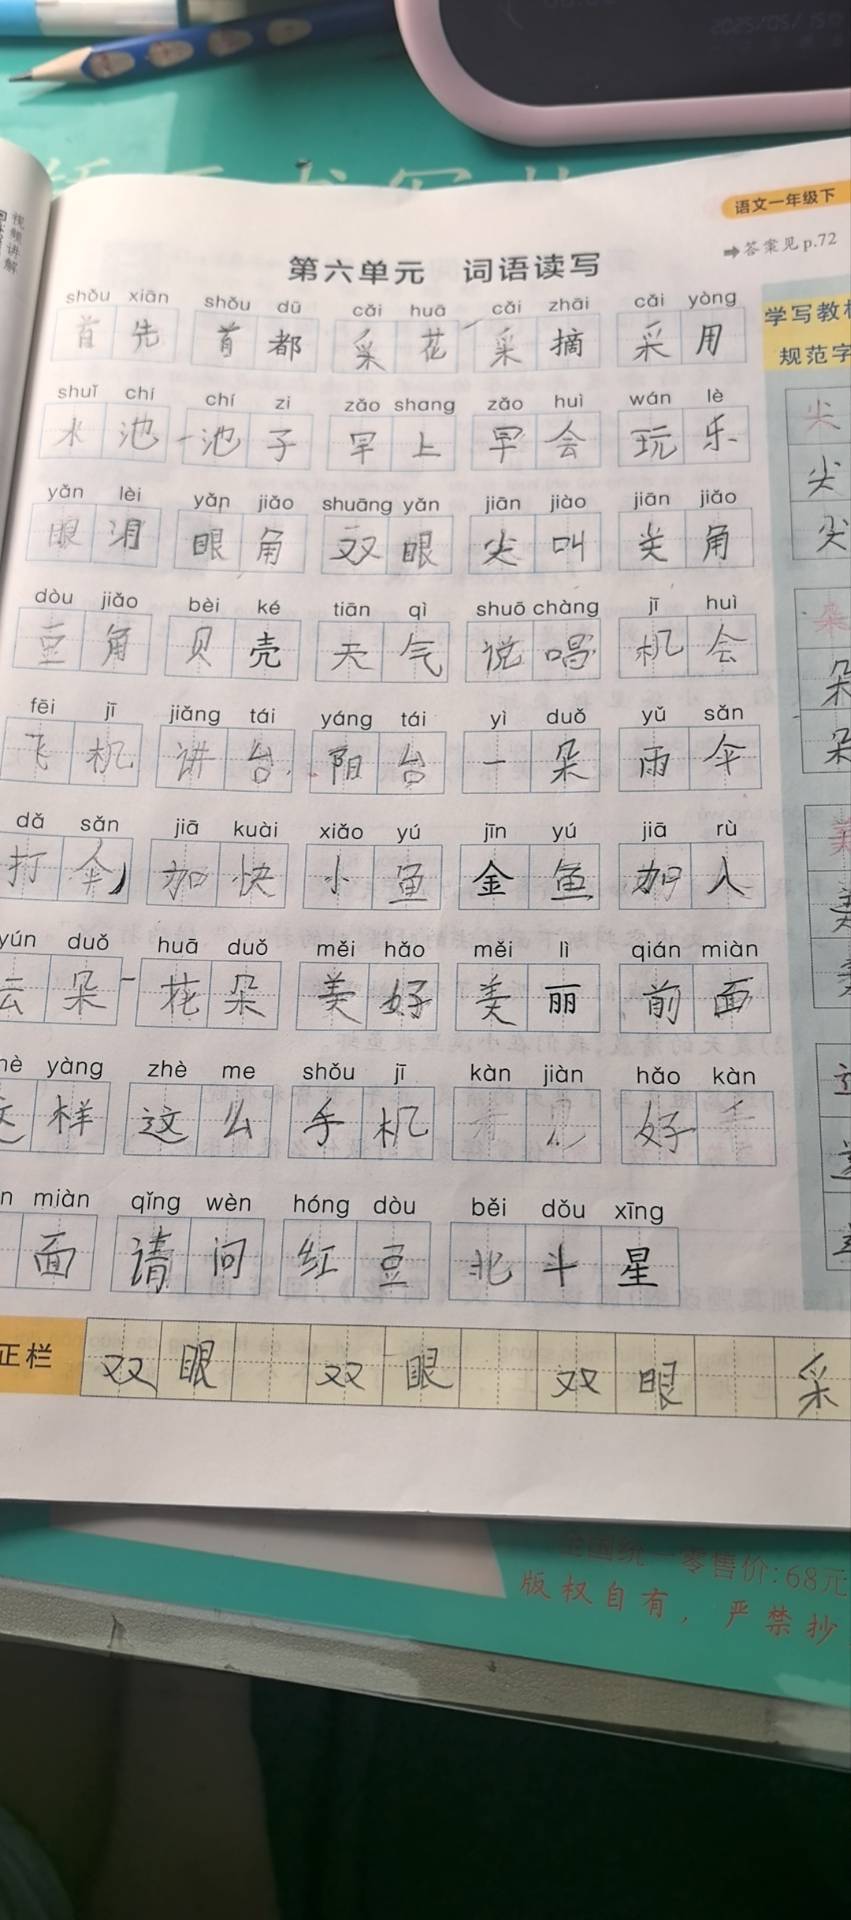 2025/05/15
语文一年级下
答案见p.72
视频讲解
第六单元 词语读写
shǒu xiān shǒu dū cǎi huā cǎi zhāi cǎi yòng
首先 首都 采花 采摘 采用
学写教材
规范字
shuǐ chí chí zi zǎo shang zǎo huì wán lè
水池 池子 早上 早会 玩乐
尖
尖
尖
yǎn lèi yǎn jiǎo shuāng yǎn jiān jiào jiān jiǎo
眼泪 眼角 双眼 尖叫 尖角
dòu jiǎo bèi ké tiān qì shuō chàng jī huì
豆角 贝壳 天气 说唱 机会
朵
朵
朵
fēi jī jiǎng tái yáng tái yì duǒ yǔ sǎn
飞机 讲台 阳台 一朵 雨伞
dǎ sǎn jiā kuài xiǎo yú jīn yú jiā rù
打伞 加快 小鱼 金鱼 加入
美
美
美
yún duǒ huā duǒ měi hǎo měi lì qián miàn
云朵 花朵 美好 美丽 前面
hè yàng zhè me shǒu jī kàn jiàn hǎo kàn
这样 这么 手机 见 好
n miàn qǐng wèn hóng dòu běi dǒu xīng
面 请问 红豆 北斗星
正栏
双眼 双眼 双眼 采
全国统一零售价:68元
版权自有,严禁抄